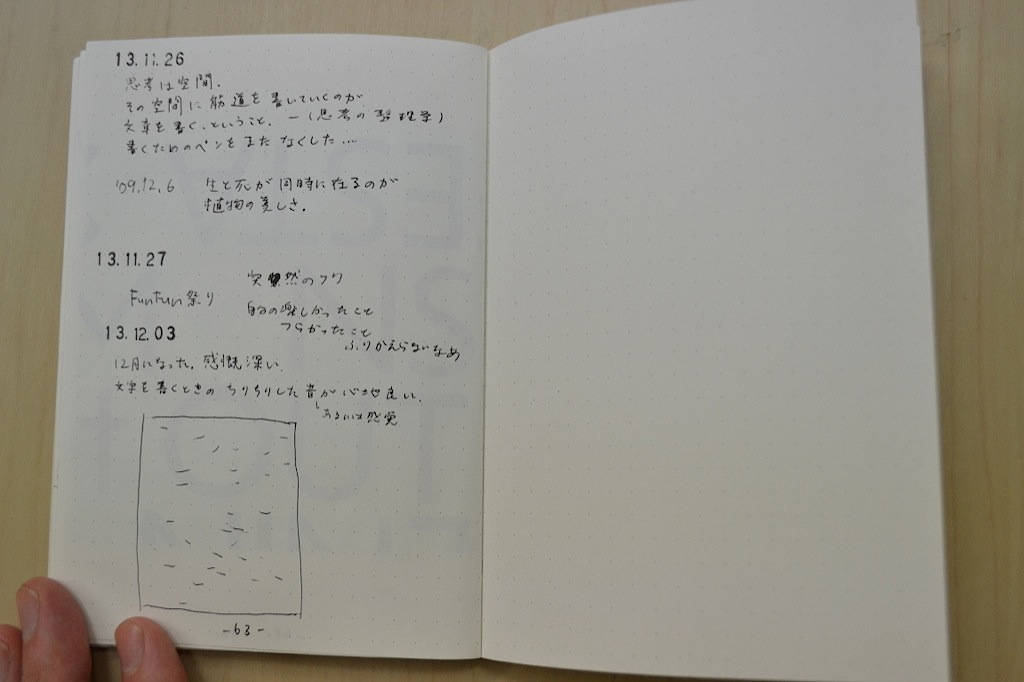 13.11.26
思考は空間.
その空間に筋道を書いていくのが
文章を書く、ということ. ー(思考の整理学)
書くためのペンをまたなくした....
'09.12.6 生と死が同時に在るのが
植物の美しさ.
13.11.27
突然のフワ
FunFun祭り
自分の楽しかったこと
つらかったこと
ふりかえらないなあ
13.12.03
12月になった. 感慨深い.
文字を書くときの ちりちりした音が心地良い.
あるいは感覚
-63-